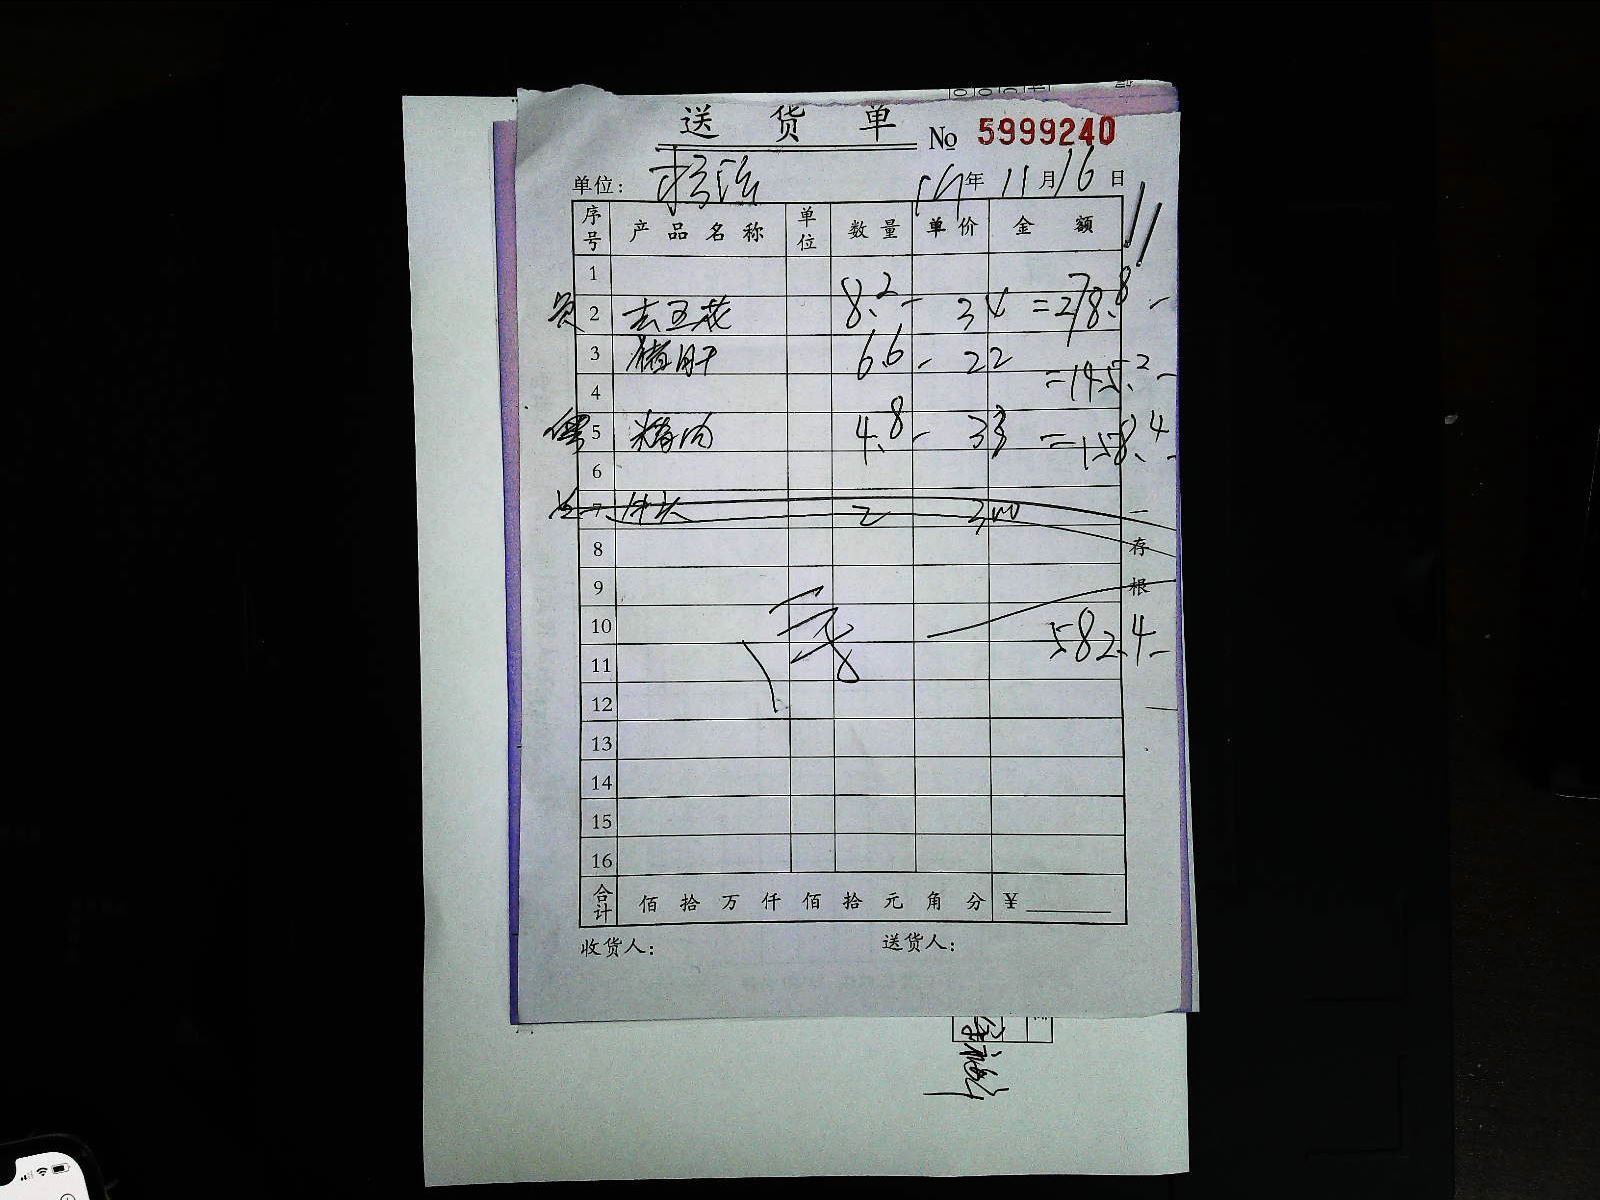 送货单 No 5999240
单位: 年 11 月 16 日
序号 产品名称 单位 数量 单价 金额
1
员 2 去五花 8.2- 34 =278.8-
3 猪肝 6.6- 22 =145.2-
4
5 精肉 4.8- 33 =158.4-
6
7 牛头 2 300
一存根
8
9
10
582.4-
11
12
13
14
15
16
合计 佰拾万仟佰拾元角分 ¥
收货人: 送货人: